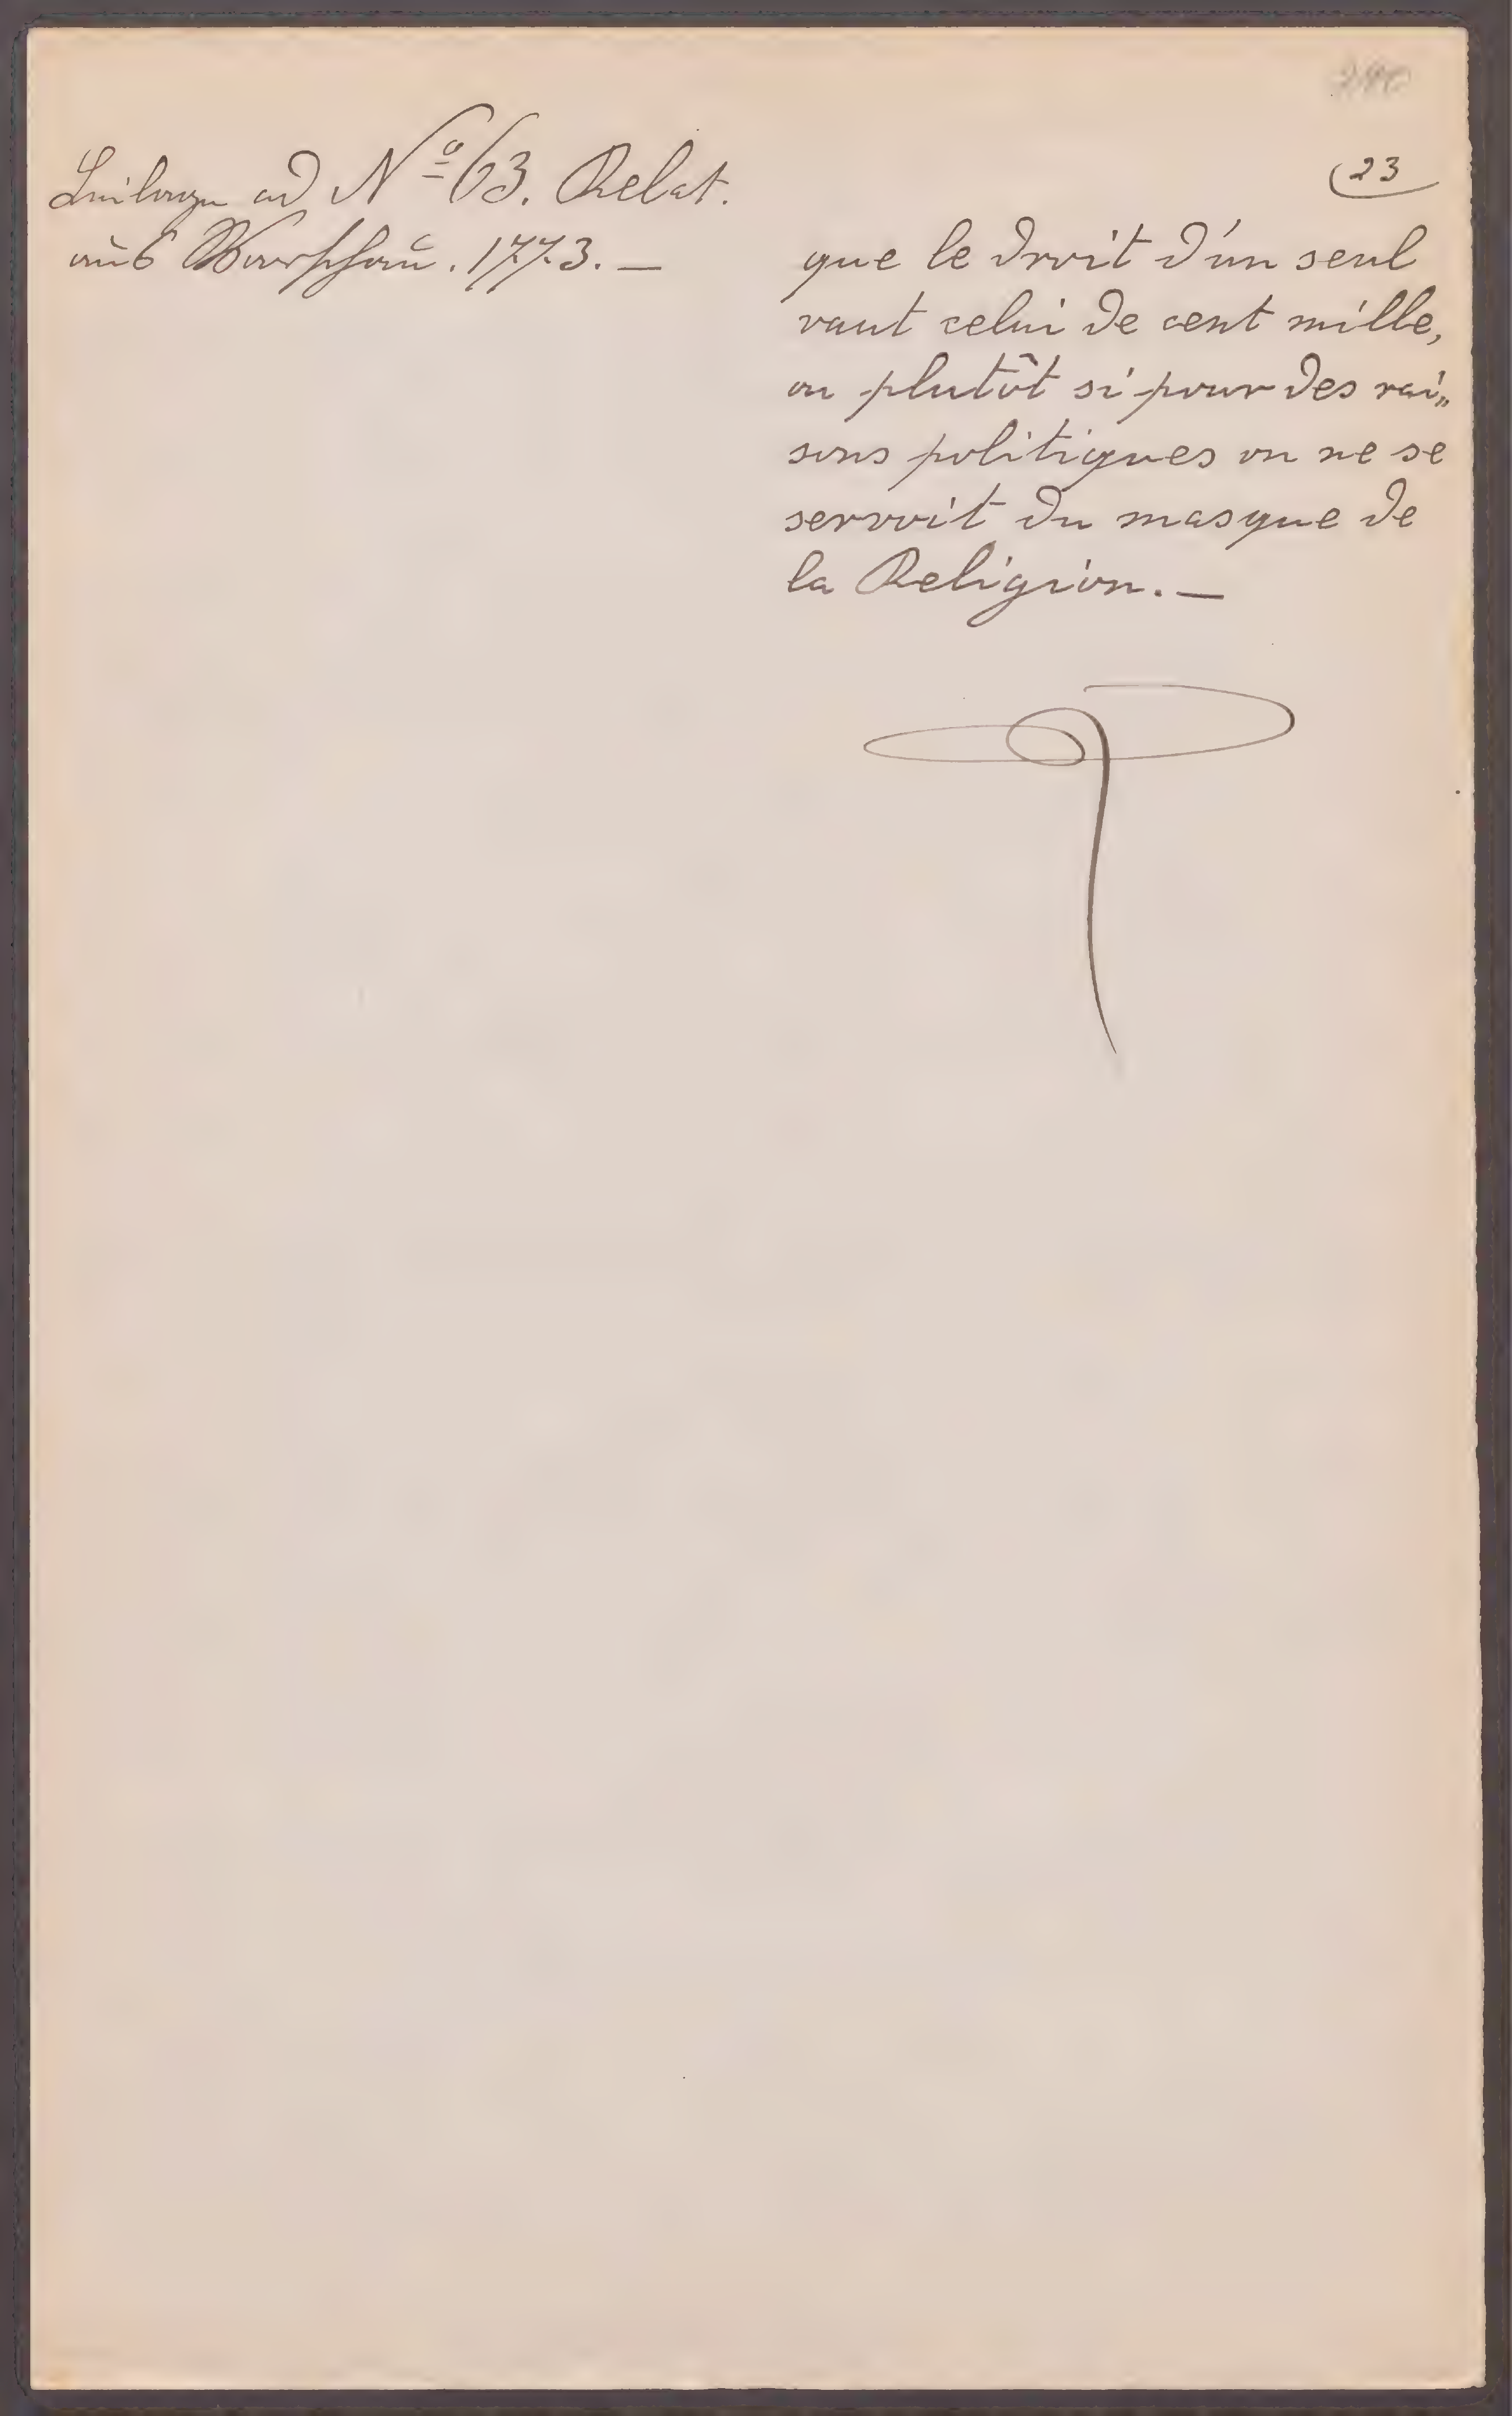 23
Beilage ad Nº 63. Relat.
aus Warschau. 1773. —
que le droit d'un seul
vaut celui de cent mille,
ou plutôt si pour des rai„
sons politiques on ne se
servoit du masque de
la Religion. —